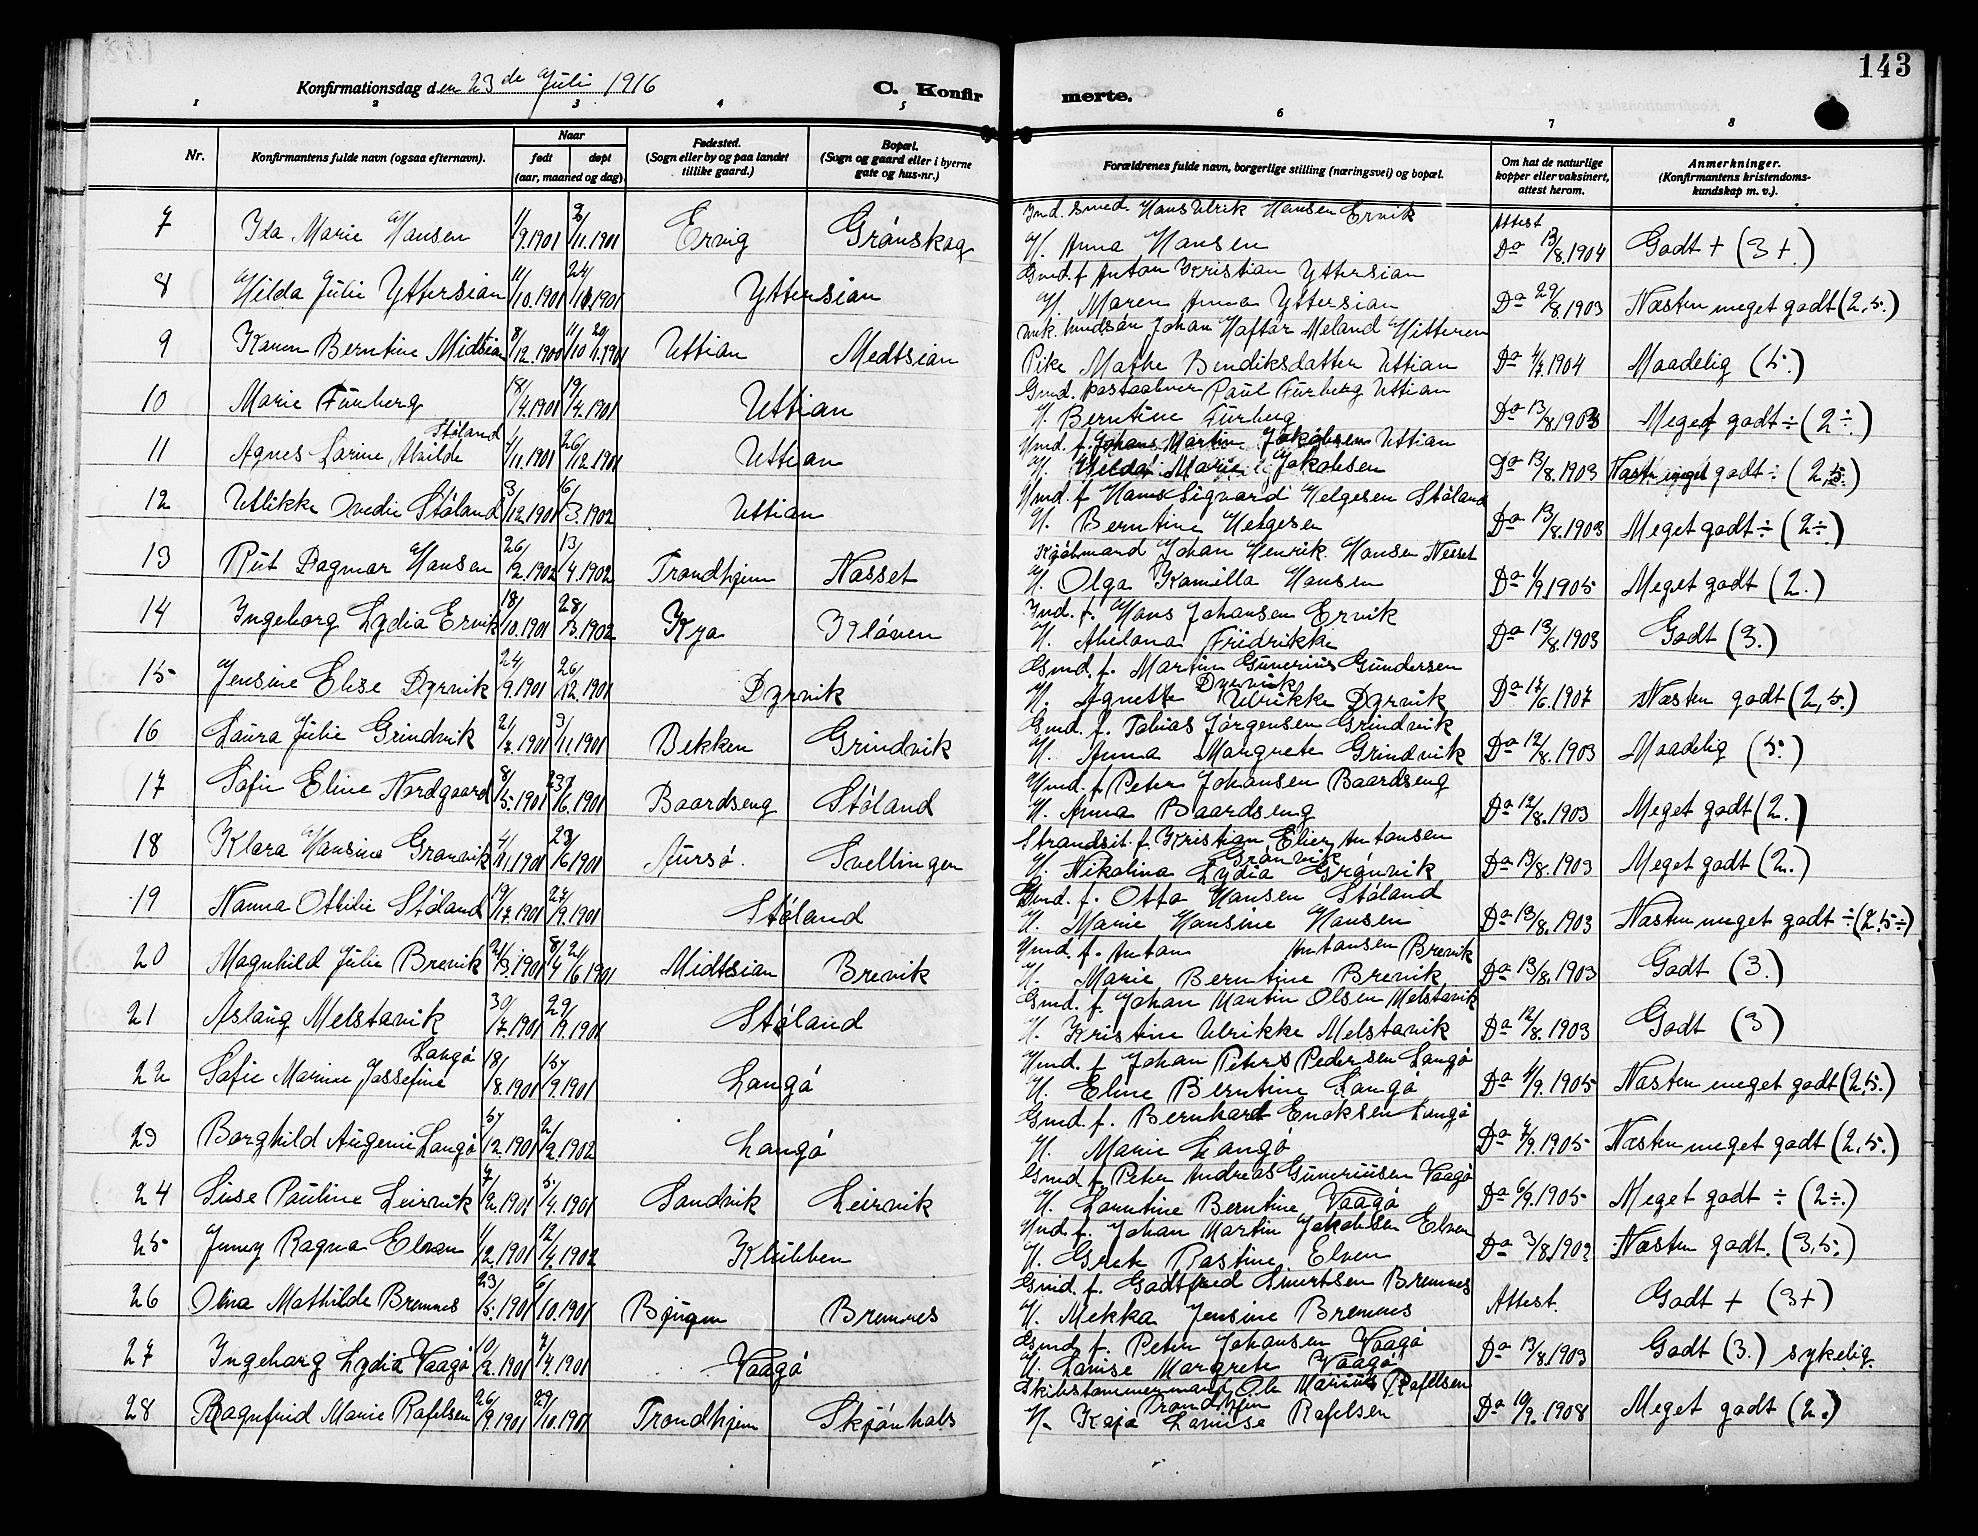 143
Konfirmationsdag den 23de Juli 1916 C. Konfir merte.
1 2 3 4 5 6 7 8
Nr. Konfirmantens fulde navn (ogsaa efternavn). Naar født døpt (aar, maaned og dag). Fødested. (Sogn eller by og paa landet tillike gaard.) Bopæl. (Sogn og gaard eller i byerne gate og hus-nr.) Forældrenes fulde navn, borgerlige stilling (næringsvei) og bopæl. Om hat de naturlige kopper eller vaksinert, attest herom. Anmerkninger. (Konfirmantens kristendomskundskap m. v.).
Ind. smed. Hans Ulrik Hansen Ervik Attest
7 Ida Marie Hansen 11/9.1901 /11.1901 Ervig Grønskag H. Anna Hansen Do 13/8.1904 Godt + (3+.)
Gmd. f Anton Kristian Yttersian
8 Hilda Julie Yttersian 11/10.1901 24/ .1901 Yttersian H. Maren Anna Yttersian Do 29/8.1903 Næsten meget godt (2,5.)
Johan Haftor Meland Hitteren
9 Karen Berntine Midtsian 8/12.1900 11/10 /11.1901 Uttian Medtsian Pike Mathe Bendiksdatter Uttian Do 4/7.1904 Maadelig (5.)
Gmd. postaabner Paul Furberg Uttian
10 Marie Furberg 18/4.1901 19/4.1901 Uttian H. Berntine Furberg Do 13/8.1903 Meget godt ÷ (2÷.)
Støland Gmd. f. Johans Martin Jakobsen Uttian
11 Agnes Larine Alvilde /11.1901 26/12.1901 Uttian H. Marie Jakobsen Do 13/8.1903 Næsten meget godt ÷ (2,5.)
Gmd. f Hans Sigvard Helgesen Støland
12 Ulikke Ovedie Støland 3/12.1901 16/3.1902 Uttian H. Berntine Helgesen Do 13/8.1903 Meget godt ÷ (2÷)
Kjøbmand Johan Henrik Hansen Nesset
13 Rut Dagmar Hansen 26/2.1902 13/4.1902 Trondhjem Næsset H. Olga Kamilla Hansen Do 11/9.1905 Meget godt (2.)
Ind. f. Hans Johansen Ervik
14 Ingeborg Lydia Ervik 18/10.1901 28/3.1902 Kya Kløven H. Abelona Fridrikke Do 13/8.1903 Godt (3.)
Gmd. f. Martin Gunerius Gundersen Dyrvik
15 Jensine Elise Dyrvik 24/9.1901 26/12.1901 Dyrvik H. Agnette Ulrikke Dyrvik Do 17/6.1907 Næsten godt (2,5.)
Gmd. f. Tobias Jørgensen Grindvik
16 Laura Julie Grindvik 21/7.1901 3/11.1901 Bekken Grindvik H. Anna Margrete Grindvik Do 12/8.1903 Maadelig (5.)
Gmd. f Peter Johansen Baardseng
17 Sofie Eline Nordgaard 8/5.1901 /6.1901 Baardseng Støland H. Anna Baardseng Do 12/8.1903 Meget godt (2.)
Strandsit. f. Kristian Elier Antonsen Grønvik
18 Klara Hansine Grønvik 4/ .1901 23/6.1901 Aursø. Svellingen H. Nikolina Lydia Grønvik Do 13/8.1903 Meget godt (2.)
Gmd. f. Otto Hansen Støland
19 Nanna Ottilie Støland 19/7.1901 27/9.1901 Støland H. Marie Hansine Hansen Do 13/8.1903 Næsten meget godt ÷ (2,5÷)
Gmd. f. Anton Antonsen Brevik
20 Magnhild Julie Brevik 21/3.1901 8/4 21/6.1901 Midtsian Brevik H. Marie Berntine Brevik Do 13/8.1903 Godt (3.)
Gmd. f. Johan Martin Olsen Melstavik
21 Aslaug Melstavik 30/7.1901 29/9.1901 Støland H. Kristine Ulrikke Melstavik Do 12/8.1903 Godt (3)
Langø Gmd. f Johan Peters Pedersen Langø
22 Sofie Marine Jossefine 18/8.1901 15/9.1901 Langø H. Eline Berntine Langø Do 4/9.1905 Næsten meget godt (2,5.)
Gmd. f. Bernhard Encksen Langø
23 Borghild Augenie Langø 5/12.1901 2/2.1902 Langø H. Marie Langø Do 7/9.1905 Næsten meget godt (2,5.)
Gmd. f Peter Andreas Guneriusen Vaagø
24 Luise Pauline Leirvik 7/2.1901 5/4.1901 Sandvik Leirvik H. Launtine Berntine Vaagø Do 6/9.1905 Meget godt ÷ (2÷.)
Gmd. f. Johan Martin Jakobsen Elven
25 Jenny Ragna Elven /12.1901 12/4.1902 Klubben H. Grete Pastine Elven Do 3/8.1903 Næsten godt. (3,5.)
Gmd. f. Godtfred Bremnes
26 Olna Mathilde Bremnes 23/5.1901 6/10.1901 Bjugn Bremnes H. Mekka Jensine Bremnes Attest. Godt + (3+)
Gmd. f. Peter Johansen Vaagø
27 Ingeborg Lydia Vaagø 10/2.1901 7/4.1901 Vaagø H. Lovise Margrete Vaagø Do 13/8.1903 Godt (3.) sykelig.
Skibstømmermand Ole Marius Rafelsen Trondhjem
28 Ragnfrid Marie Rafelsen 26/9.1901 29/10.1901 Trondhjem Skjønhals H. Kaja Lovise Rafelsen Do 10/9.1908 Meget godt (2.)